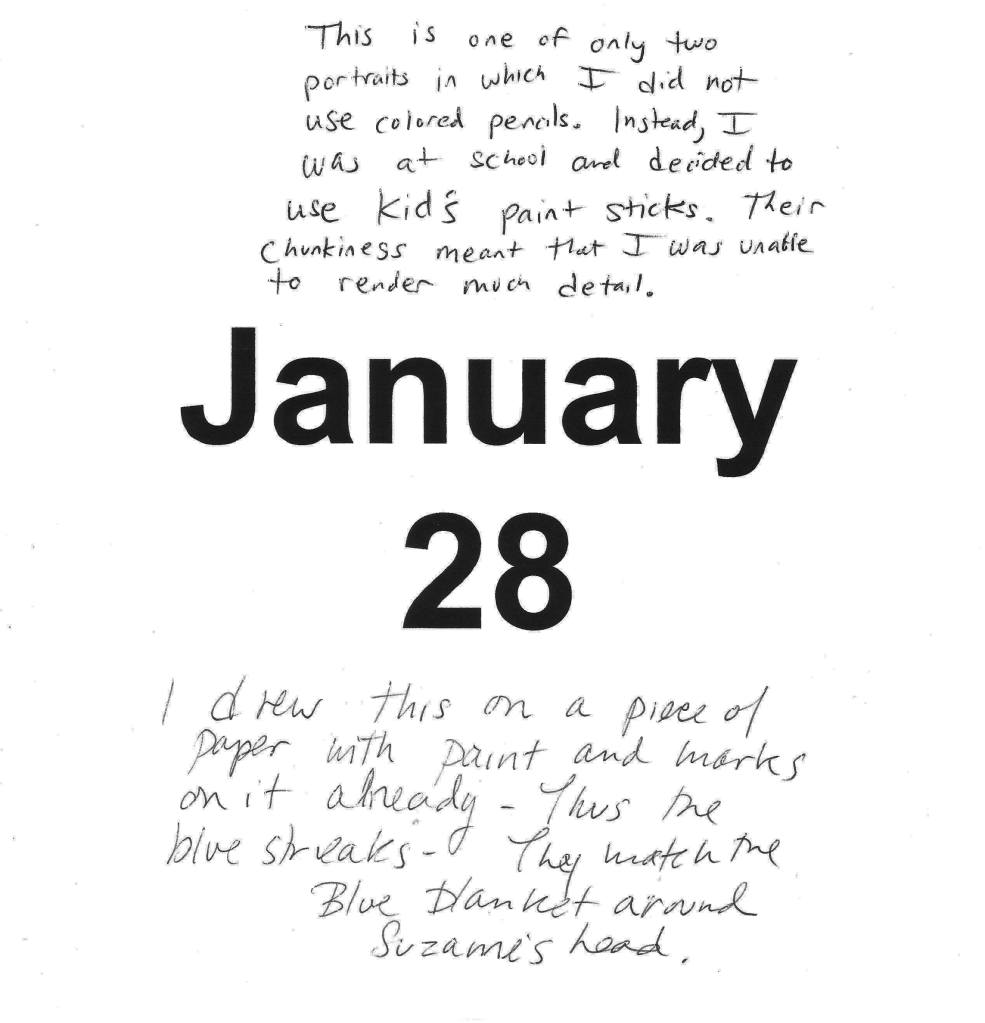 This is one of only two
portraits in which I did not
use colored pencils. Instead, I
was at school and decided to
use Kid's paint sticks. Their
Chunkiness meant that I was unable
to render much detail.
January
28
I drew this on a piece of
paper with paint and marks
on it already - Thus the
blue streaks - They match the
Blue blanket around
Suzanne's head.